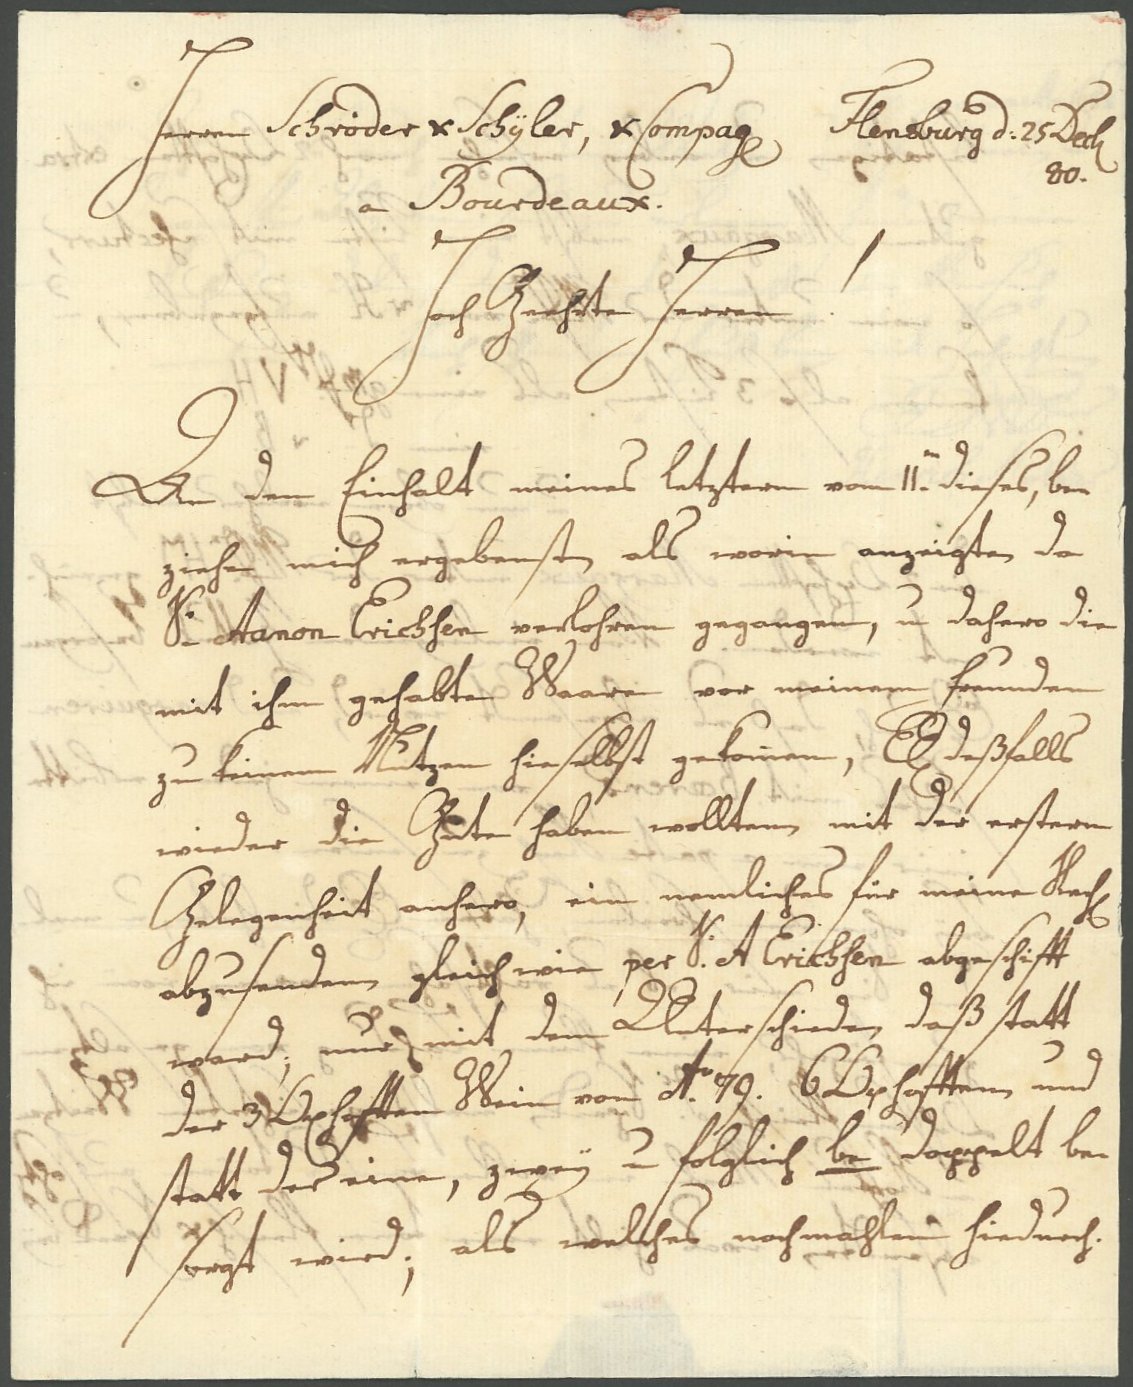 Herren Schröder & Schÿler, & Compag Flensburg d: 25 Dech
80.
a Bourdeaux.
Hoch Geehrte Herren!
An dem Einhalt meines letztern vom 11.n dieses, be-
ziehe mich ergebenst, als worin anzeigte, da
S. Aanon Erichsen verlohren gegangen, u dahero die
mit ihm gehabte Waaren vor meinem freunden
zu keinem Nutzen hieselbst gekom̄en, E deßfalls
wieder die Güte haben wollten, mit der erstern
Gelegenheit anhero, ein nemliches für meine Rech
abzusenden, gleich wie per S. A Erichsen abgeschifft
ward; nur mit dem Unterschiede, daß statt
der 3 Oxhofften Wein von Ao. 79. 6 Oxhofften, und
statt der eine, zweÿ u folglich be doppelt be-
sorgt wird; als welches nochmahlen hiedurch.